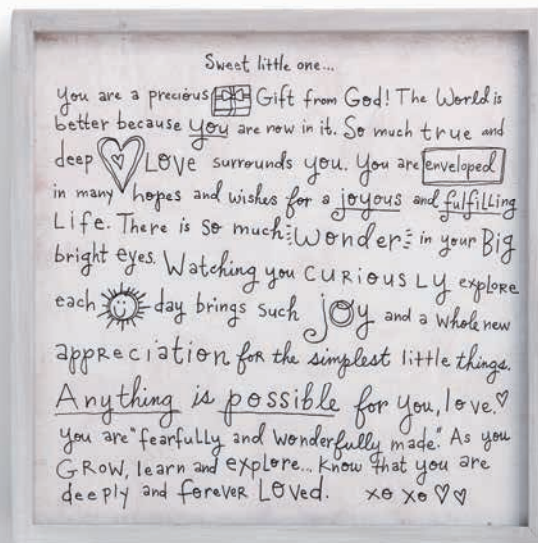 Sweet little one...
You are a precious Gift from God! The World is
better because you are now in it. So much true and
deep LOVE surrounds you. You are enveloped
in many hopes and wishes for a joyous and fulfilling
Life. There is so much wonder in your Big
bright eyes. Watching you CURIOUSLY explore
each day brings such joy and a whole new
appreciation for the simplest little things.
Anything is possible for you, love. ♡
You are "fearfully and wonderfully made." As you
GROW, learn and explore... Know that you are
deeply and forever LOVED. xo xo ♡♡